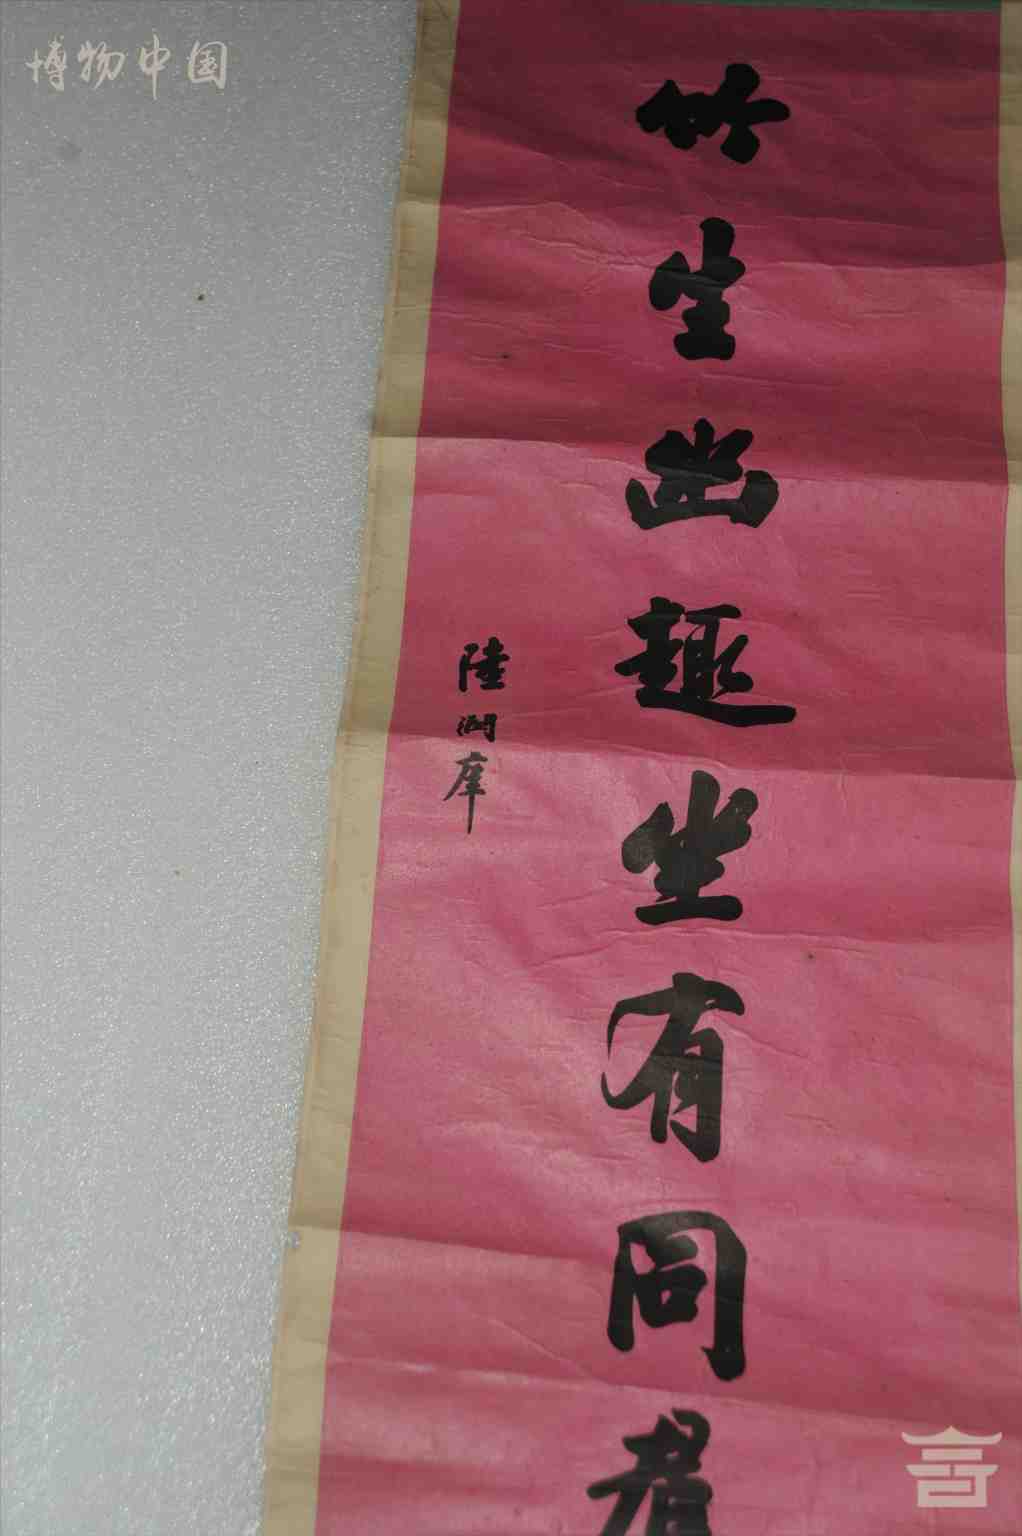 博物中国
竹生幽趣坐有同
陸潤庠